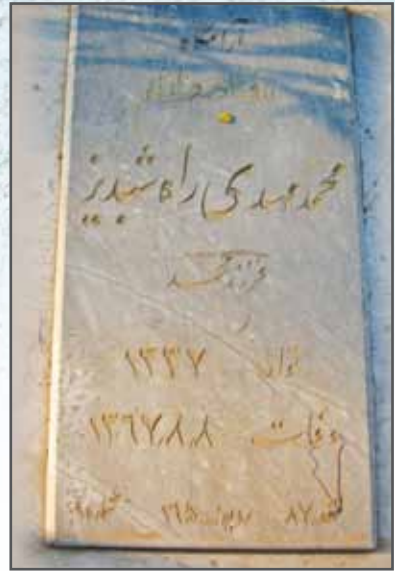 آرامگاه
محمد مهدی راه شبدیز
فرزند محمد
تولد ۱۳۳۷
وفات ۱۳۶۷،۸،۸
۸۷ ردیف ۱۶۵